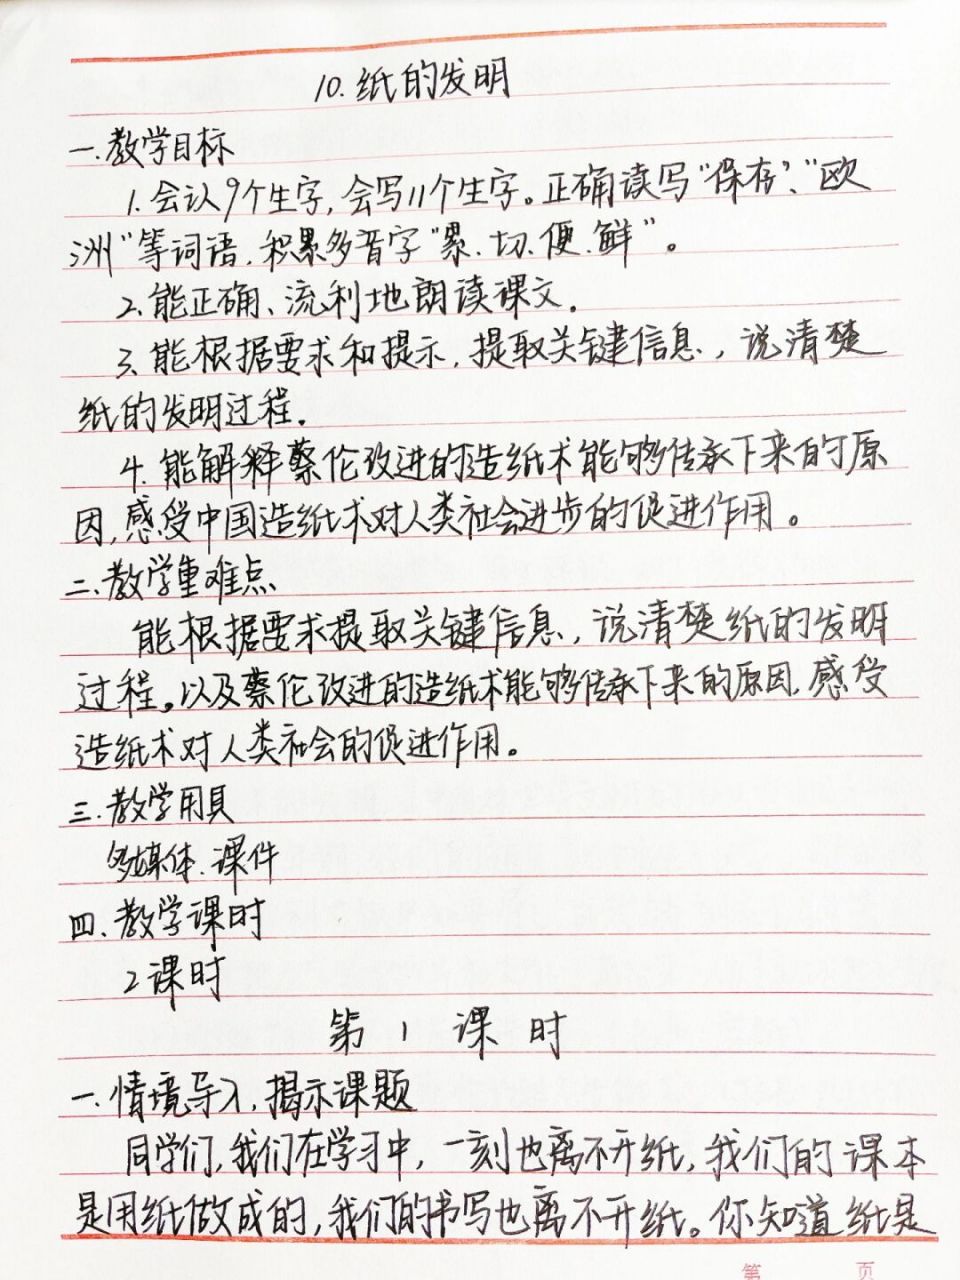 10.纸的发明
一.教学目标
1.会认9个生字,会写11个生字。正确读写“保存”、“欧
洲”等词语,积累多音字“累.切.便.鲜”。
2.能正确、流利地朗读课文.
3.能根据要求和提示,提取关键信息,说清楚
纸的发明过程.
4.能解释蔡伦改进的造纸术能够传承下来的原
因,感受中国造纸术对人类社会进步的促进作用。
二.教学重难点
能根据要求提取关键信息,说清楚纸的发明
过程。以及蔡伦改进的造纸术能够传承下来的原因,感受
造纸术对人类社会的促进作用。
三.教学用具
多媒体.课件
四.教学课时
2课时
第1课时
一.情境导入,揭示课题
同学们,我们在学习中,一刻也离不开纸,我们的课本
是用纸做成的,我们的书写也离不开纸。你知道纸是
第 页